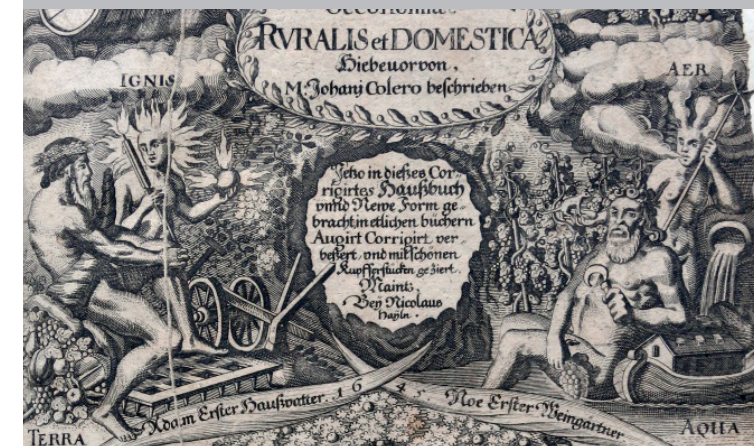 Oeconomia
RVRALIS et DOMESTICA
Hiebeuor von
M. Johanj Colero beschrieben
IGNIS
AER
Jetzo in dießes Cor-
rigirtes Haußbuch
vnnd Newe Form ge-
bracht, in etlichen büchern
Augirt Corrigirt ver
beßert, vnd mit schönen
Kupfferstucken geziert.
Maintz,
Beÿ Nicolaus
Haÿln.
Adam Erster Haußvatter. 1645 Noe Erster Weingartner
TERRA
AQUA